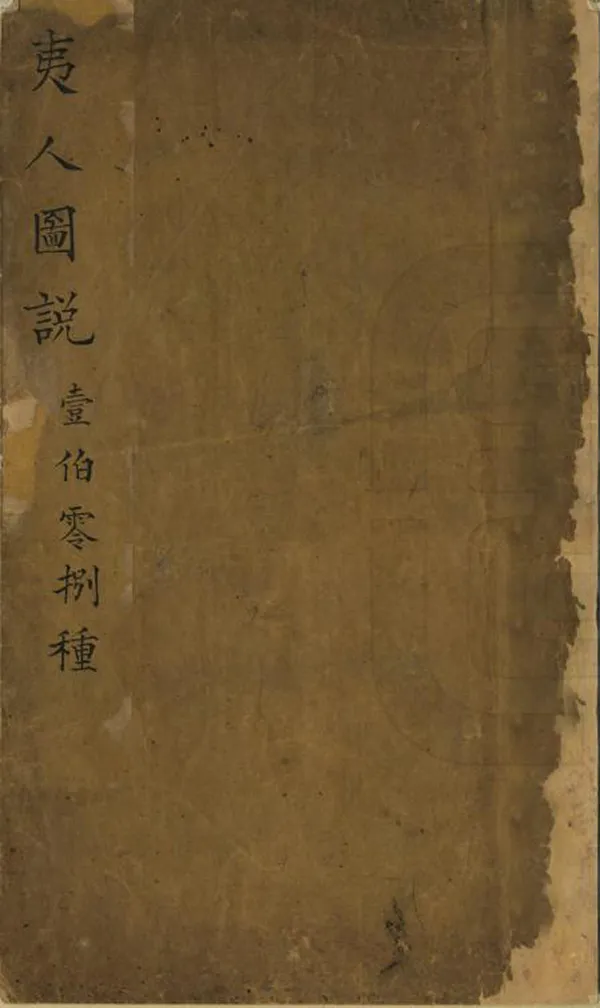 夷人圖説 壹伯零捌種